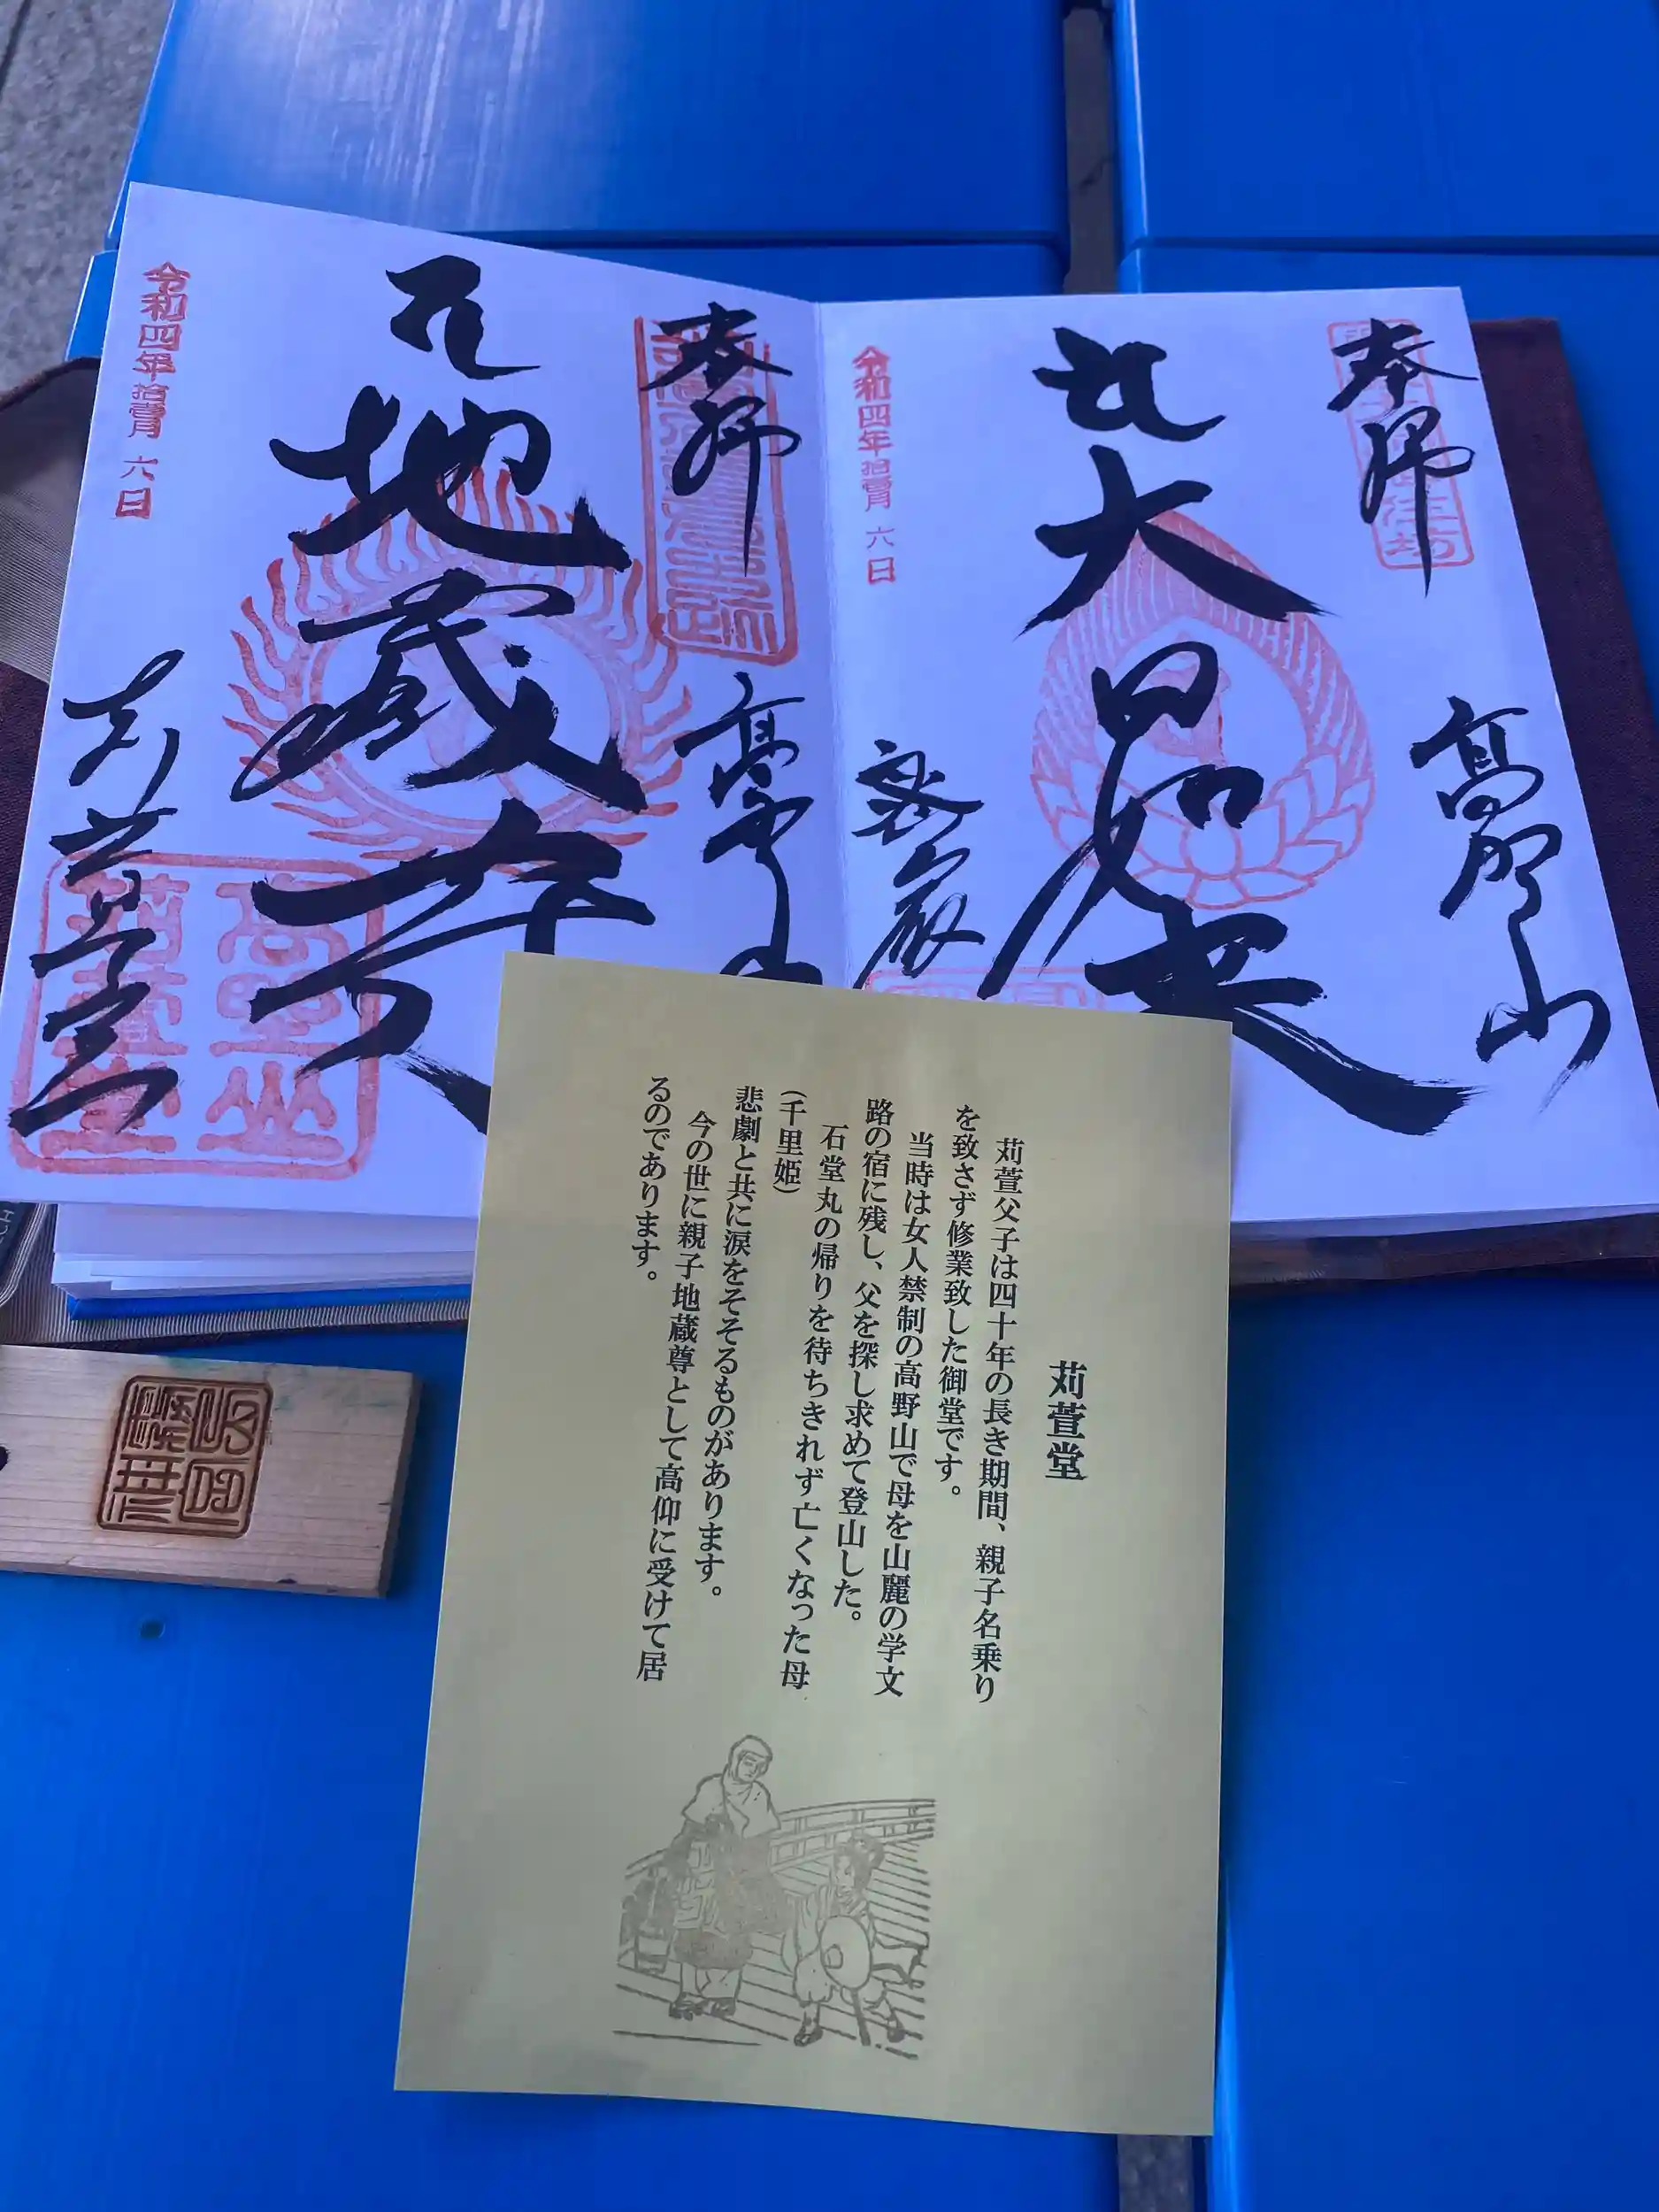 奉拝
高野山
大日如来
密厳
令和四年拾壹月 六日
奉拝
高野山
地蔵尊
苅萱堂
令和四年拾壹月 六日
苅萱堂
苅萱父子は四十年の長き期間、親子名乗り
を致さず修業致した御堂です。
当時は女人禁制の高野山で母を山麗の学文
路の宿に残し、父を探し求めて登山した。
石堂丸の帰りを待ちきれず亡くなった母
(千里姫)
悲劇と共に涙をそそるものがあります。
今の世に親子地蔵尊として高仰に受けて居
るのであります。